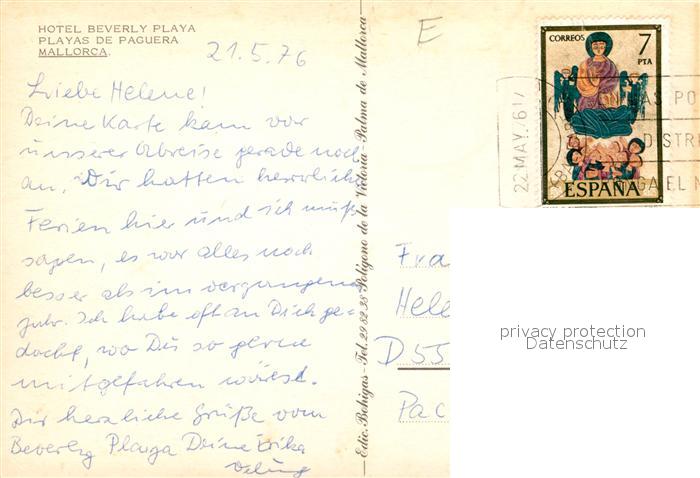 HOTEL BEVERLY PLAYA
PLAYAS DE PAGUERA
MALLORCA.
21.5.76
Liebe Helene!
Deine Karte kam vor
unserer Abreise gerade noch
an. Wir hatten herrliche
Ferien hier und ich muß
sagen, es war alles noch
besser als im vergangenen
Jahr. Ich habe oft an Dich ge-
dacht, wo Du so gerne
mitgefahren wärest.
Dir herzliche Grüße vom
Beverly Playa Deine Erika
Edic. Bohigas - Tel. 22 82 38 Polígono de la Victoria - Palma de Mallorca
E
CORREOS 7
PTA
ESPAÑA
22 MAY. 76
DISTRI
NGA EL N
Fra
Hele
D 55
Pac
privacy protection
Datenschutz